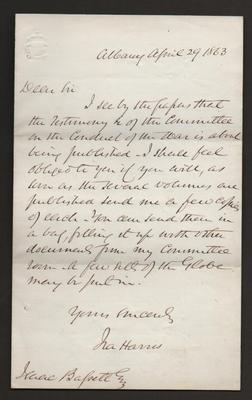 Albany April 29 1863
Dear Sir
I see by the papers that
the Testimony &c of the Committee
on the Conduct of the War is about
being published - I shall feel
obliged to you if you will, as
soon as the several volumes are
published send me a few copies
of each - You can send them in
a bag, filling it up with other
documents from my Committee
room - A few of the Globe
may be put in -
Yours Sincerely
Ira Harris
Isaac Bassett Esq